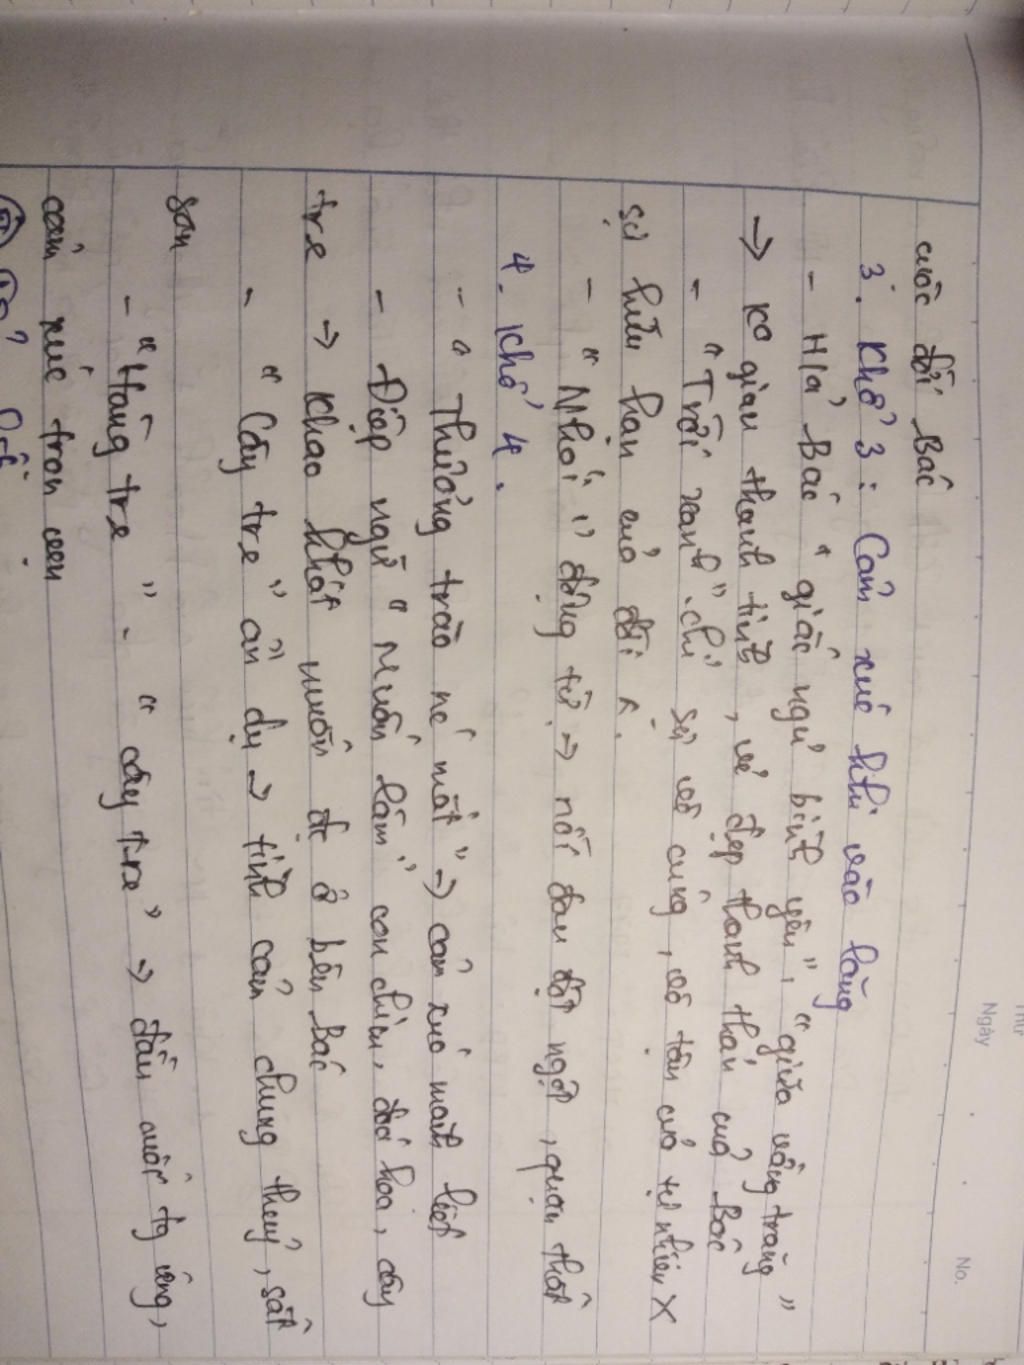 Thứ
Ngày
No.
cuộc đời Bác
3. Khổ 3: Cảm xúc khi vào lăng
- H/ả Bác "giấc ngủ bình yên", "giữa vầng trăng"
→ ko gian thanh tịnh, vẻ đẹp thanh thản của Bác
- "Trời xanh" chỉ sự vô cùng, vô tận của tự nhiên X
sự hữu hạn của đời
- "Nhói" động từ → nỗi đau đột ngột, quặn thắt
4. Khổ 4.
- "Thương trào nc mắt" → cảm xúc mãnh liệt
- Điệp ngữ "Muốn làm" con chim, đoá hoa, cây
tre → khao khát muốn đc ở bên Bác
- "Cây tre" ẩn dụ → tình cảm chung thuỷ, sắt
son
- "Hàng tre" - "cây tre" → đầu cuối tg ứng,
cảm xúc trọn vẹn